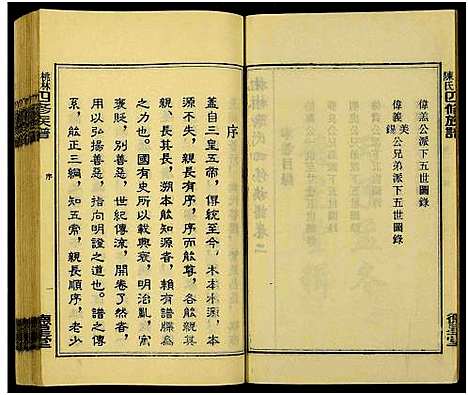 陳氏四修族譜
偉羔公派下五世圖錄
偉義美錁公兄弟派下五世圖錄
序
蓋自三皇五帝，傳統至今，木本水源，本
源不失，親長有序，序而能尊，各能親其
親、長其長，溯本能知源者，賴有譜牒為
之力也。國有史所以載興衰，明治亂，寓
褒貶，別善惡，世紀傳流，開卷了然者，
用以弘揚善惡，指向明證之道也。譜亦
是，能正三綱，知五常，親長順序，老少
桃林四修族譜
序
一